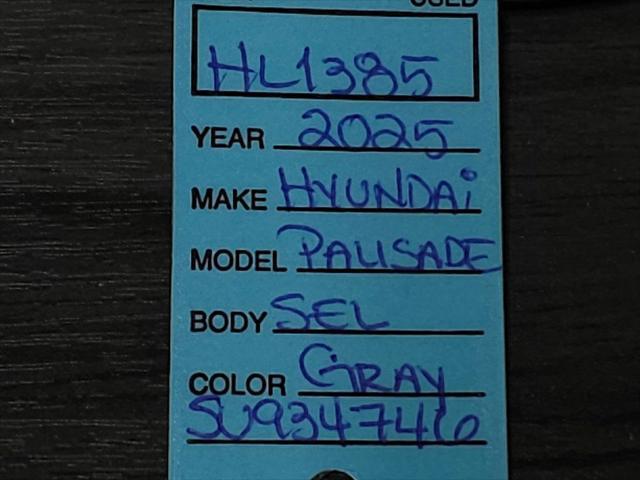 USED
HL1385
YEAR 2025
MAKE HYUNDAi
MODEL PALISADE
BODY SEL
COLOR GRAY
SU934746